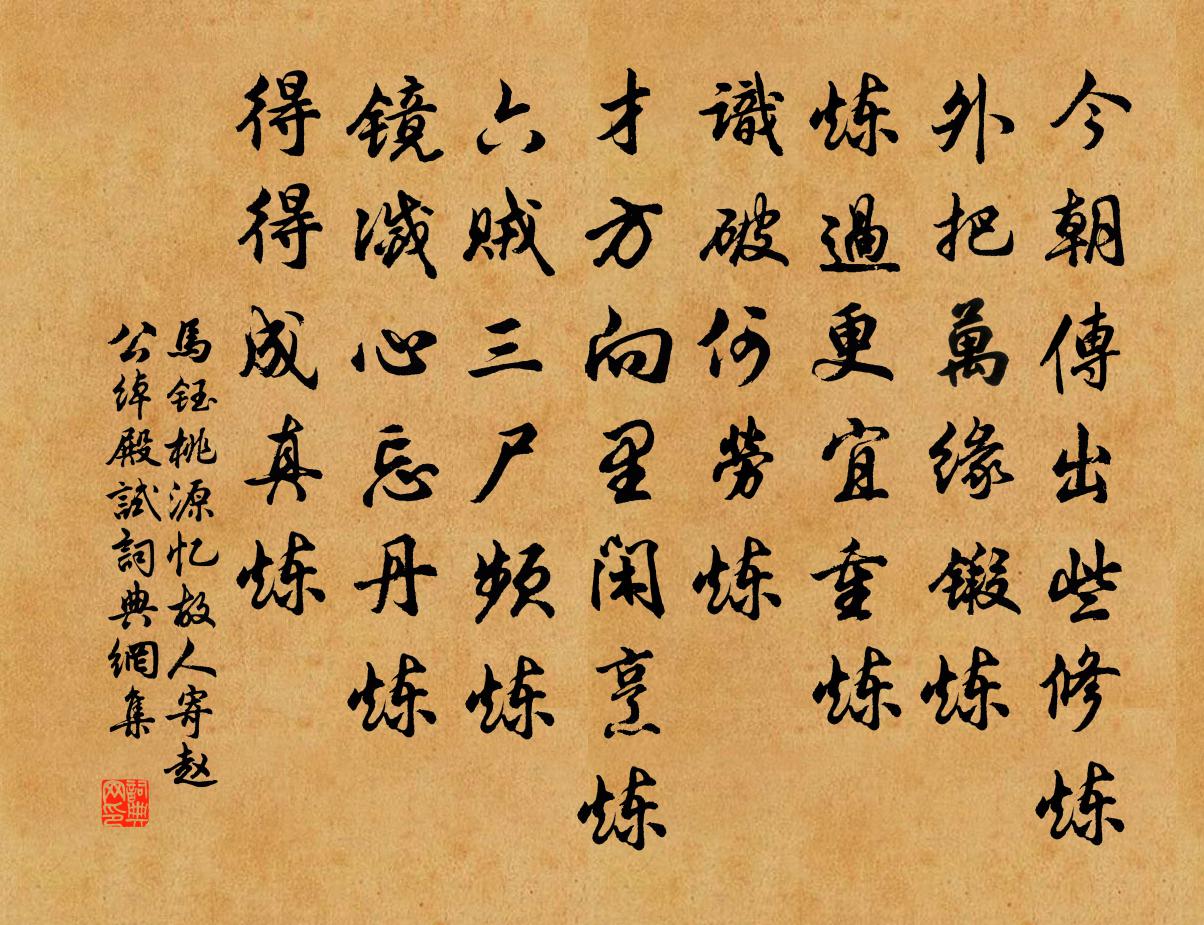 今朝傳出些修炼
外把萬緣鍛炼
炼過更宜重炼
識破何勞炼
才方向里闲烹炼
六贼三尸频炼
镜滅心忘丹炼
得得成真炼
馬钰桃源忆故人寄赵
公绰殿試詞典網集
詞典网印